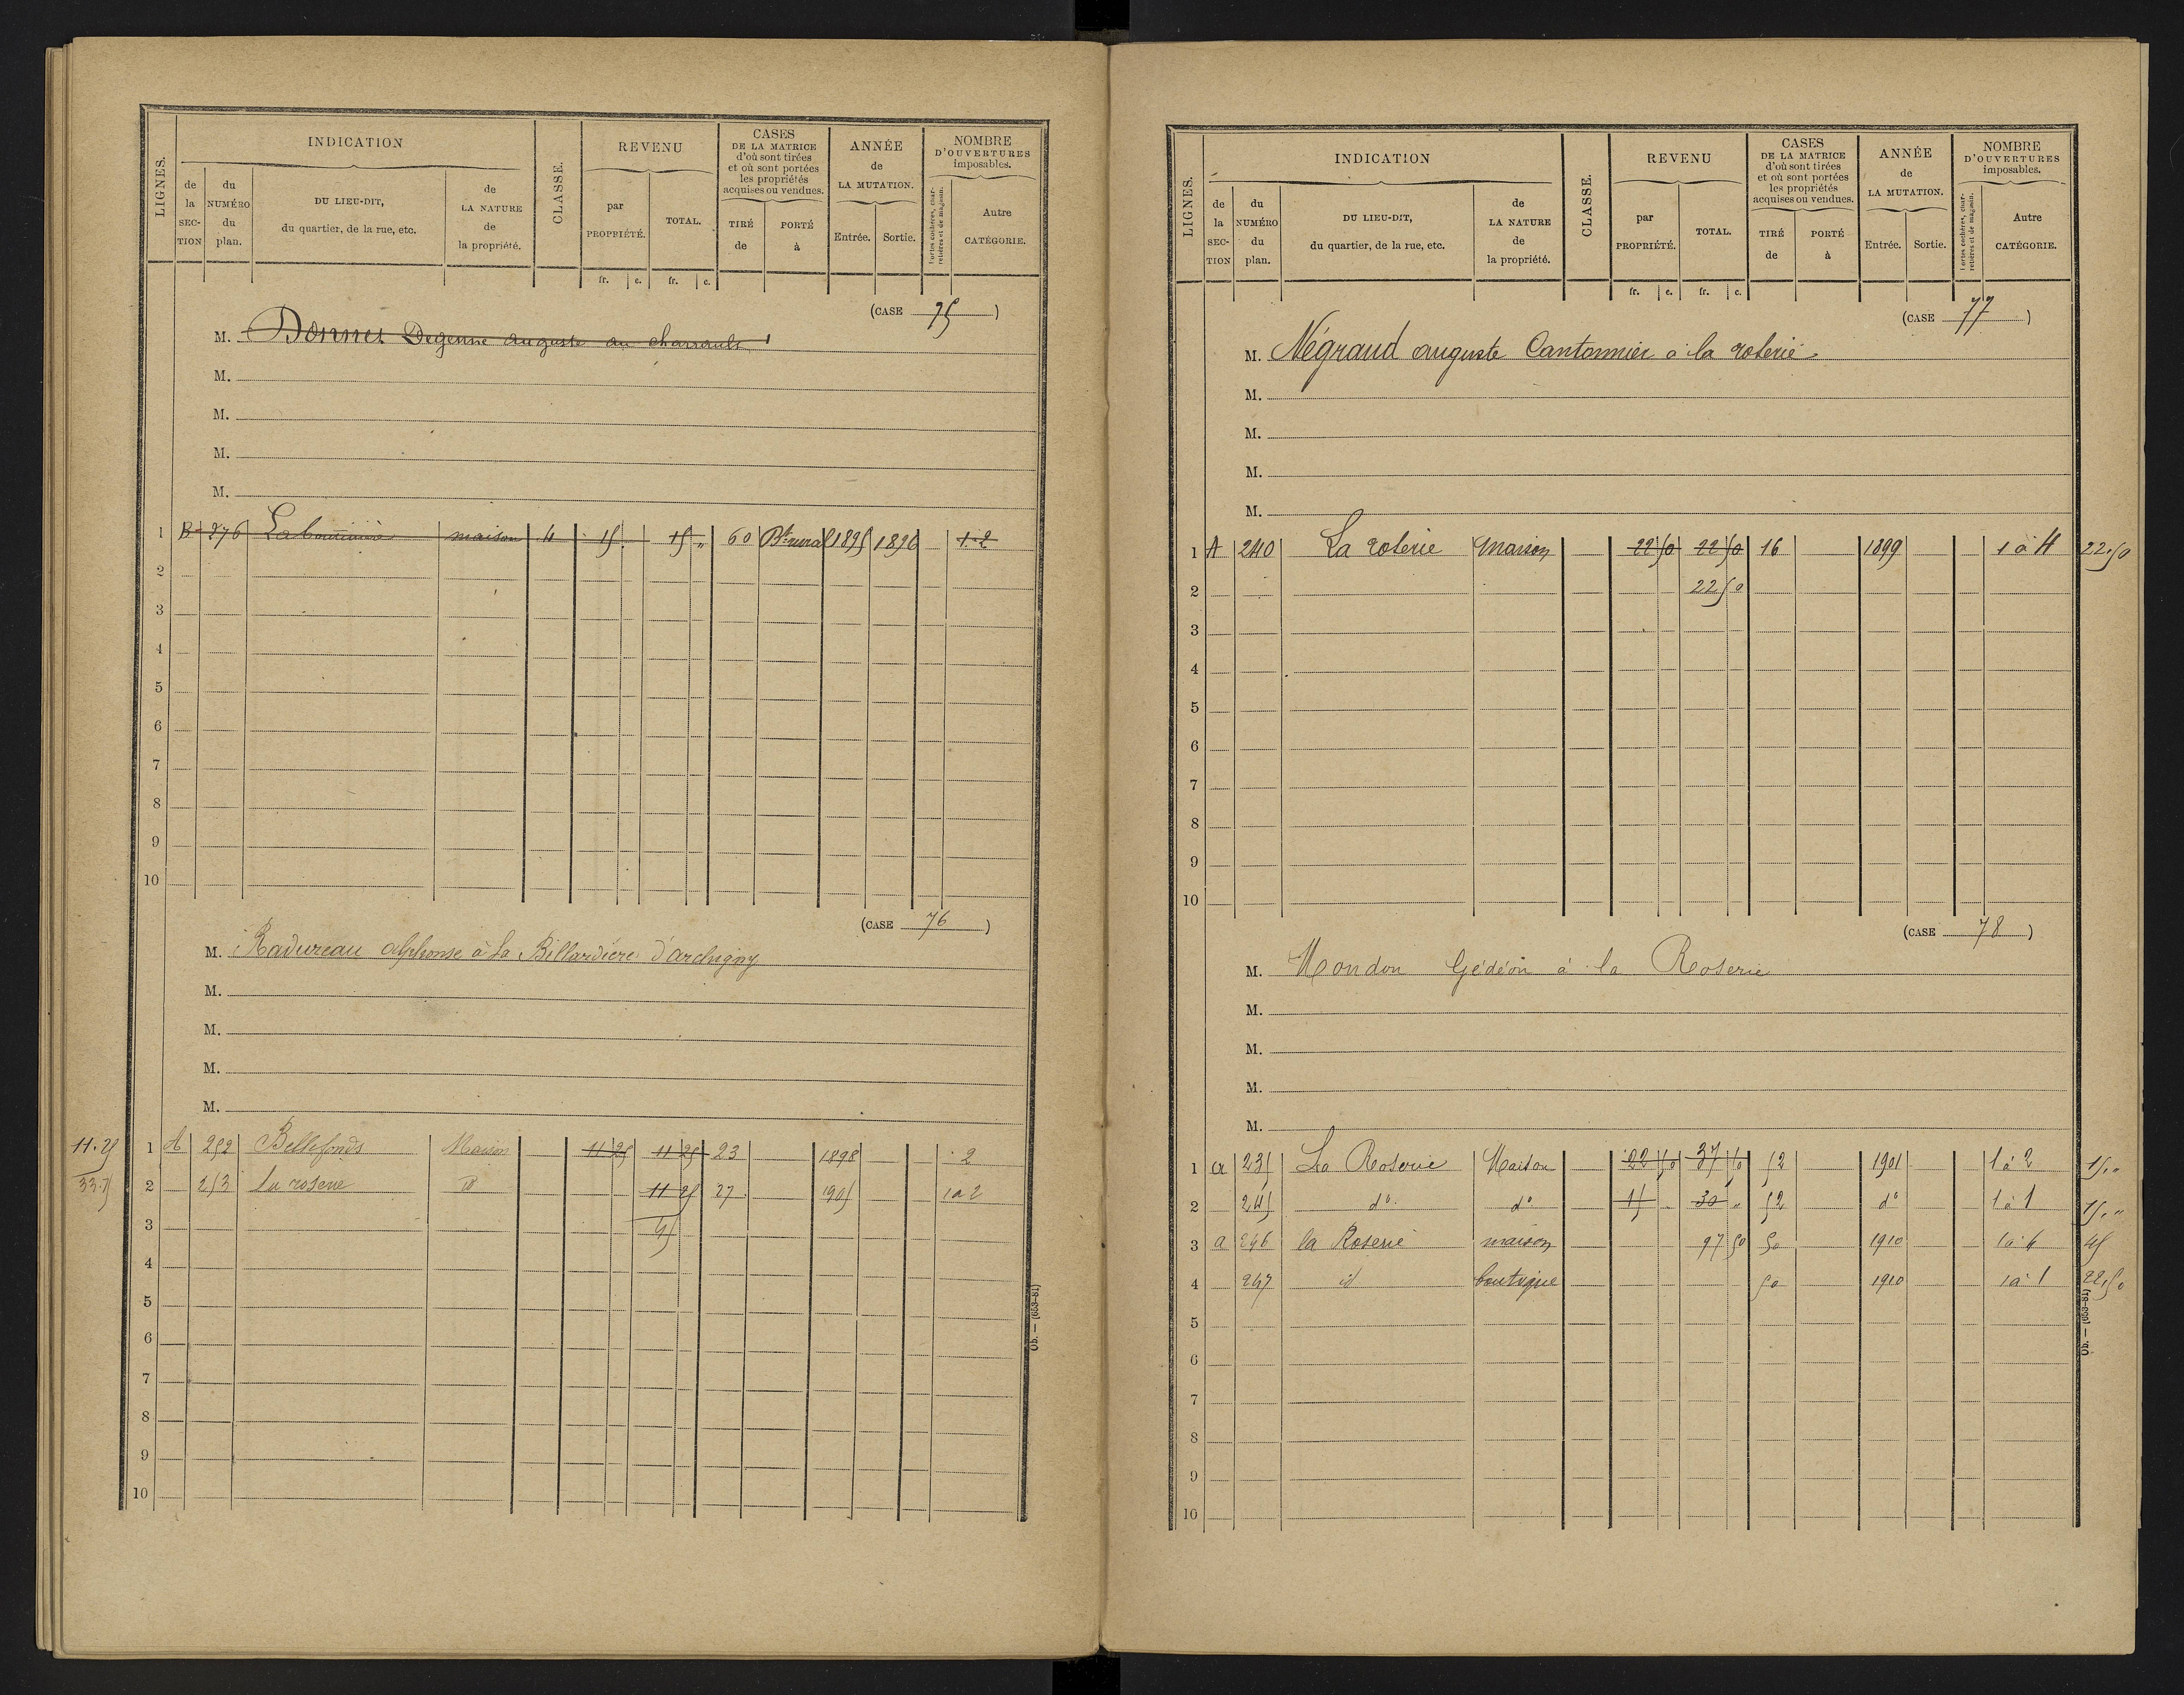 LIGNES.
INDICATION
de la SECTION
du NUMÉRO du plan.
DU LIEU-DIT, du quartier, de la rue, etc.
de LA NATURE de la propriété.
CLASSE.
REVENU
par PROPRIÉTÉ.
TOTAL.
CASES DE LA MATRICE d'où sont tirées et où sont portées les propriétés acquises ou vendues.
TIRÉ de
PORTÉ à
ANNÉE de LA MUTATION.
Entrée. Sortie.
NOMBRE D'OUVERTURES imposables.
Portes cochères, charretières et de magasin.
Autre CATÉGORIE.
fr. c. fr. c.
(CASE 75)
M. Bonnet Degenne auguste au charrault
M.
M.
M.
M.
1 B 276 maison 4 15 15 " 60 Bt rural 1895 1896 1-2
2
3
4
5
6
7
8
9
10
(CASE 76)
M. Radureau alphonse à la Billardière d'archigny
M.
M.
M.
M.
11.25 1 A 252 Bellefonds Maison 11 25 11 25 23 1898 2
33.75 2 253 la roserie id 11 25 27 1905 1 a 2
3 45
4
5
6
7
8
9
10
Ob. — (653-81)
LIGNES.
INDICATION
de la SECTION
du NUMÉRO du plan.
DU LIEU-DIT, du quartier, de la rue, etc.
de LA NATURE de la propriété.
CLASSE.
REVENU
par PROPRIÉTÉ.
TOTAL.
CASES DE LA MATRICE d'où sont tirées et où sont portées les propriétés acquises ou vendues.
TIRÉ de
PORTÉ à
ANNÉE de LA MUTATION.
Entrée. Sortie.
NOMBRE D'OUVERTURES imposables.
Portes cochères, charretières et de magasin.
Autre CATÉGORIE.
fr. c. fr. c.
(CASE 77)
M. Négraud auguste Cantonnier à la roterie
M.
M.
M.
M.
1 A 240 La roterie Maison 22 50 22 50 16 1899 1 à 4 22.50
2 22 50
3
4
5
6
7
8
9
10
(CASE 78)
M. Mondon Gédéon à la Roserie
M.
M.
M.
M.
1 a 235 La Roserie Maison 22 50 37 50 52 1901 1 à 2 15."
2 245 d° d° 15 30 " 52 d° 1 à 1 15."
3 a 246 la Roserie maison 97 50 50 1910 1 à 6 45
4 247 id boutique 50 1910 1 à 1 22.50
5
6
7
8
9
10
Ob. — (653-81)